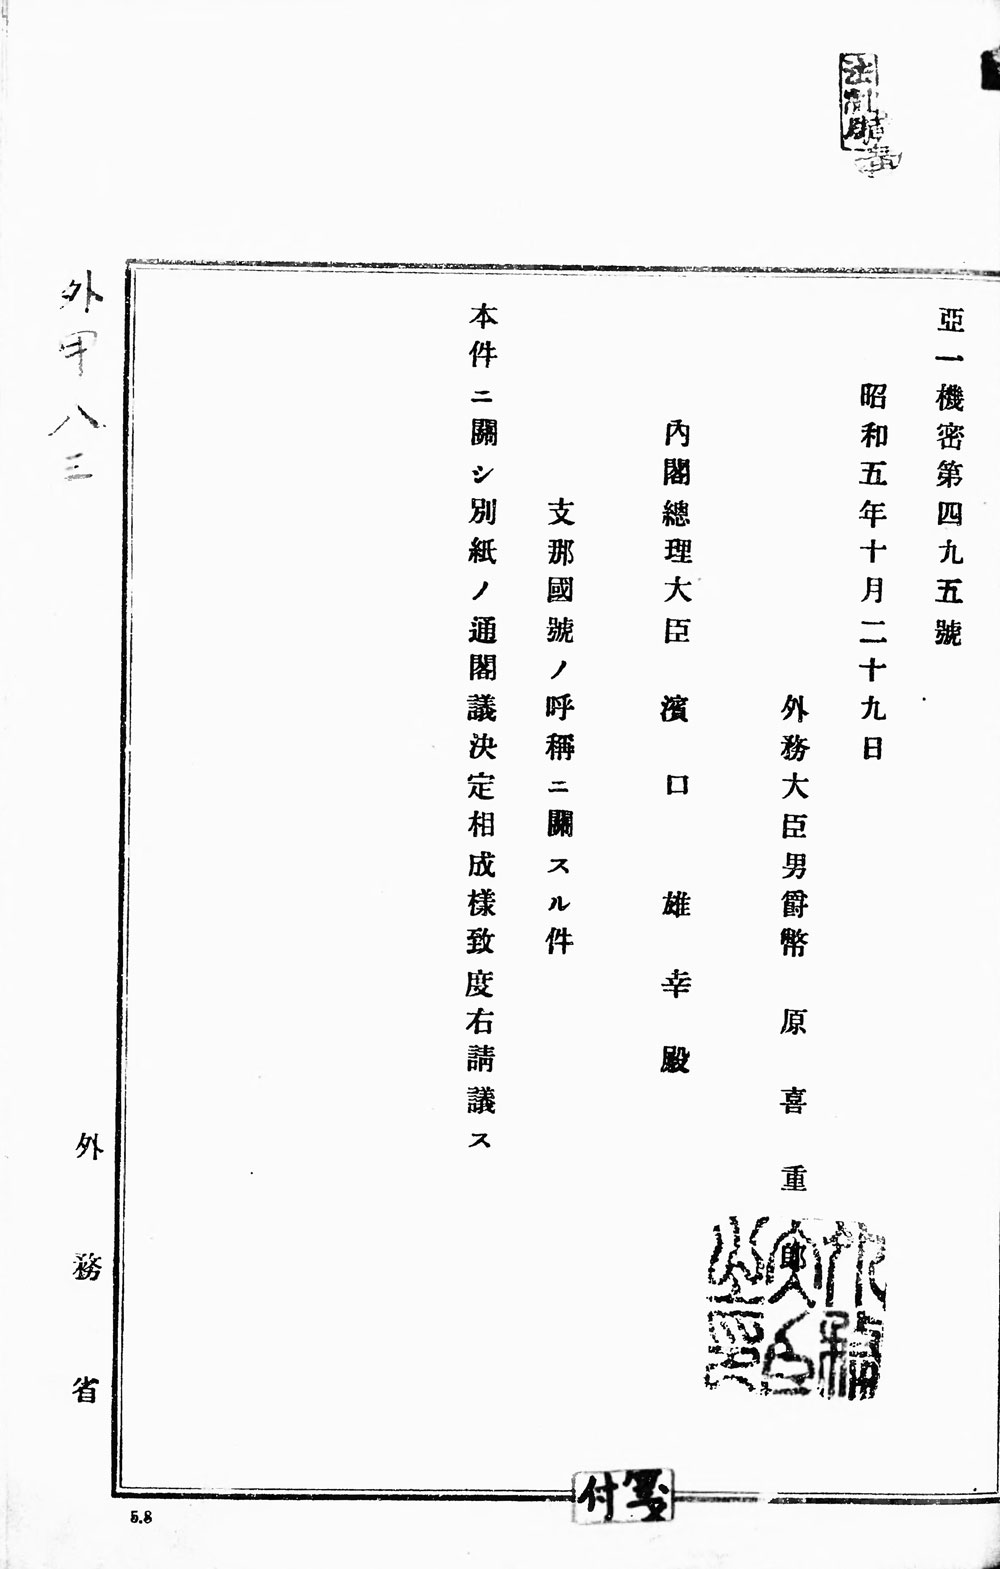 亞一機密第四九五號
昭和五年十月二十九日
外務大臣男爵幣原喜重郎
外務大臣之印
內閣總理大臣 濱口雄幸殿
支那國號ノ呼稱ニ關スル件
本件ニ關シ別紙ノ通閣議決定相成樣致度右請議ス
外甲八三
外務省
付箋
5.8